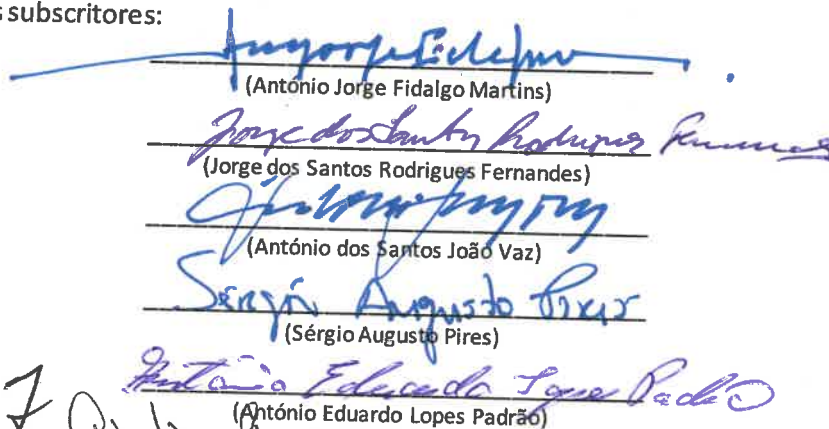 s subscritores:
(António Jorge Fidalgo Martins)
Jorge dos Santos Rodrigues Fernandes
(Jorge dos Santos Rodrigues Fernandes)
(António dos Santos João Vaz)
Sérgio Augusto Pires
(Sérgio Augusto Pires)
António Eduardo Lopes Padrão
(António Eduardo Lopes Padrão)